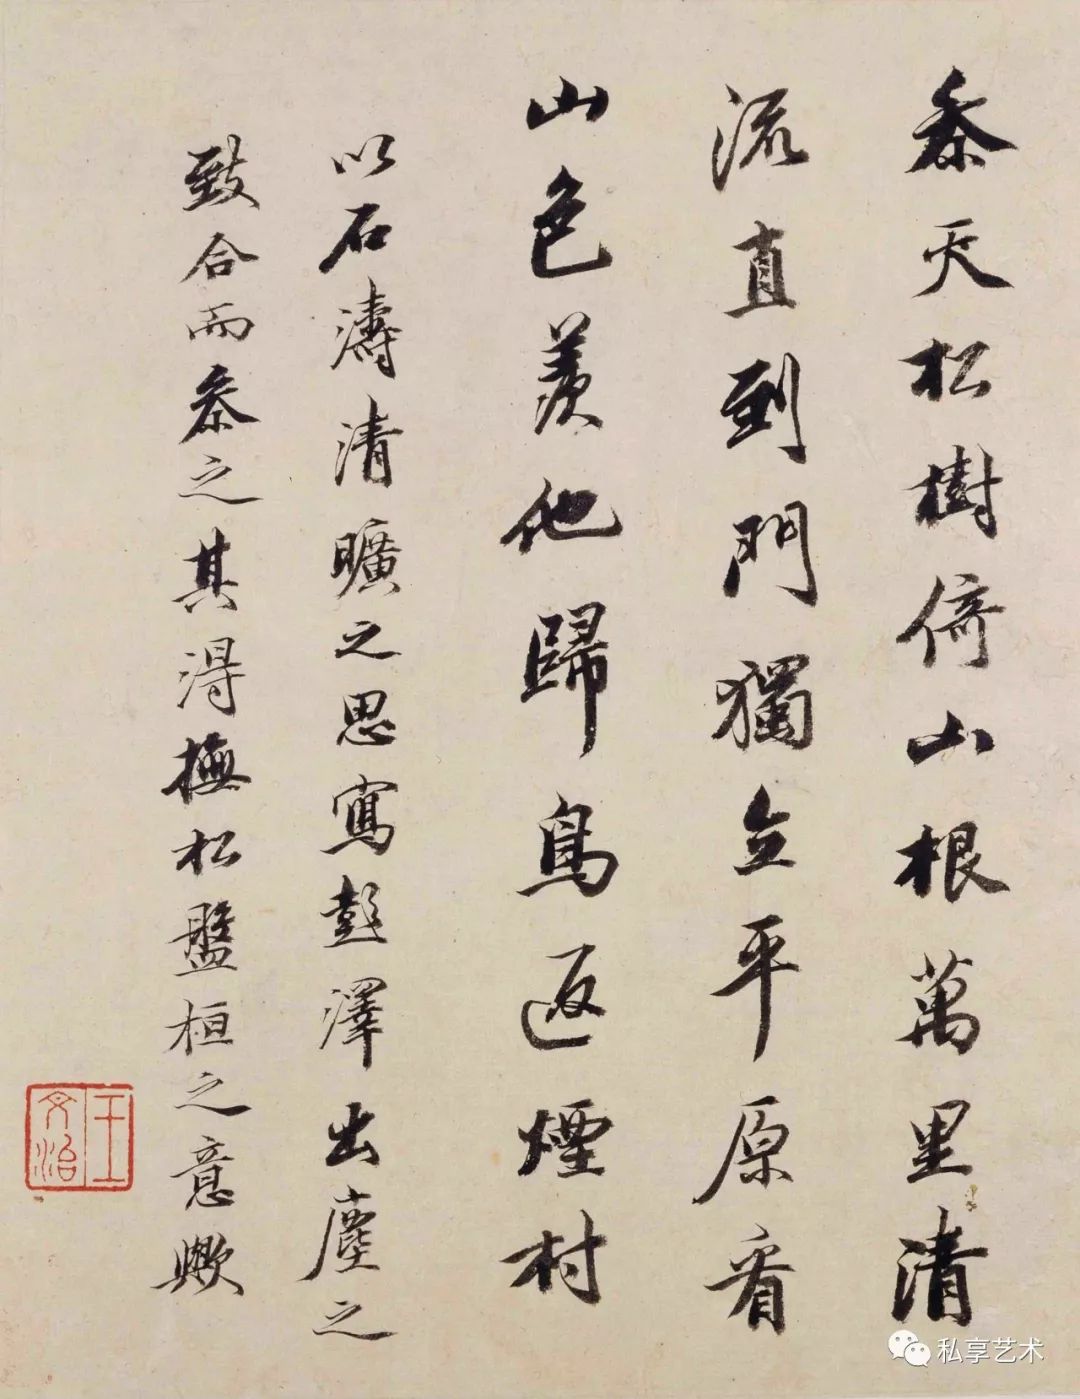 叅天松樹倚山根萬里清
流直到門獨立平原看
山色羨他歸鳥返煙村
以石濤清曠之思寫彭澤出塵之
致合而叅之其得撫松盤桓之意歟
王文治
私享艺术